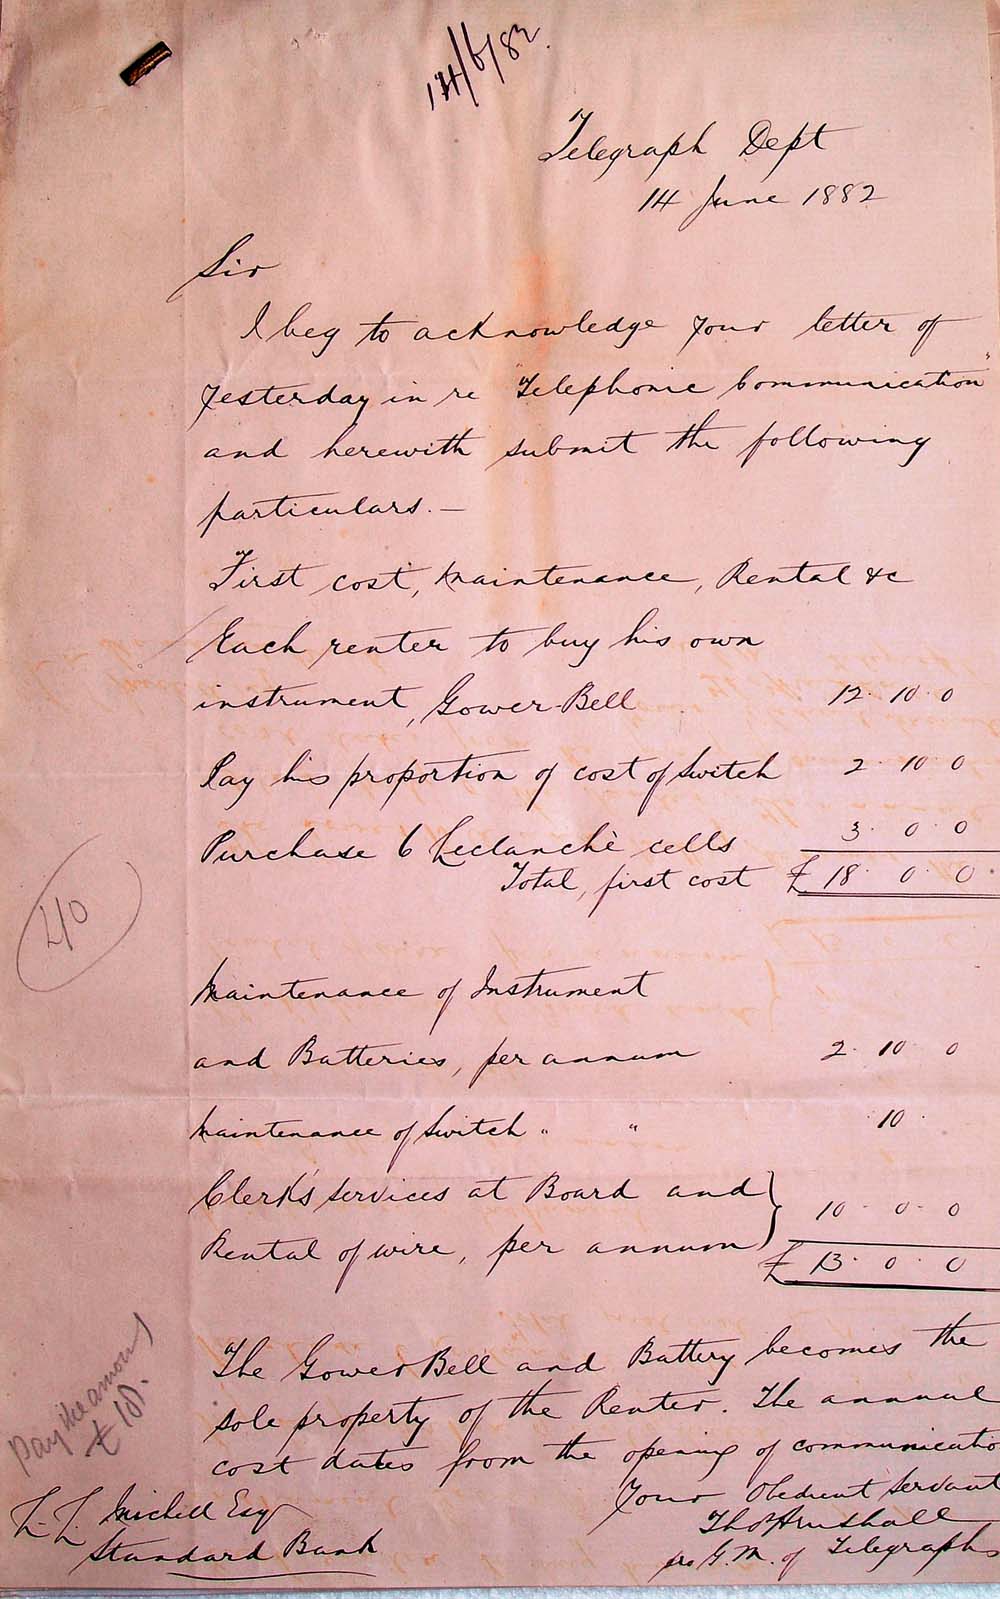 14/6/82.
Telegraph Dept
14 June 1882
Sir
I beg to acknowledge your letter of
yesterday in re "Telephonic Communication"
and herewith submit the following
particulars. —
First cost, Maintenance, Rental &c
Each renter to buy his own
instrument, Gower-Bell 12. 10. 0
Pay his proportion of cost of Switch 2. 10. 0
Purchase 6 Leclanchè cells 3. 0. 0
Total, first cost £ 18. 0. 0.
40
Maintenance of Instrument
and Batteries, per annum 2. 10. 0
Maintenance of Switch " " . 10 .
Clerk's services at Board and
Rental of wire, per annum } 10. 0. 0
£ 13. 0. 0
The Gower Bell and Battery becomes the
sole property of the Renter. The annual
cost dates from the opening of communicatio
Pay the amount
£ 18.
Your Obedient Servant
Thos
pro G. M. of Telegraphs
L. L. Michell Esq
Standard Bank